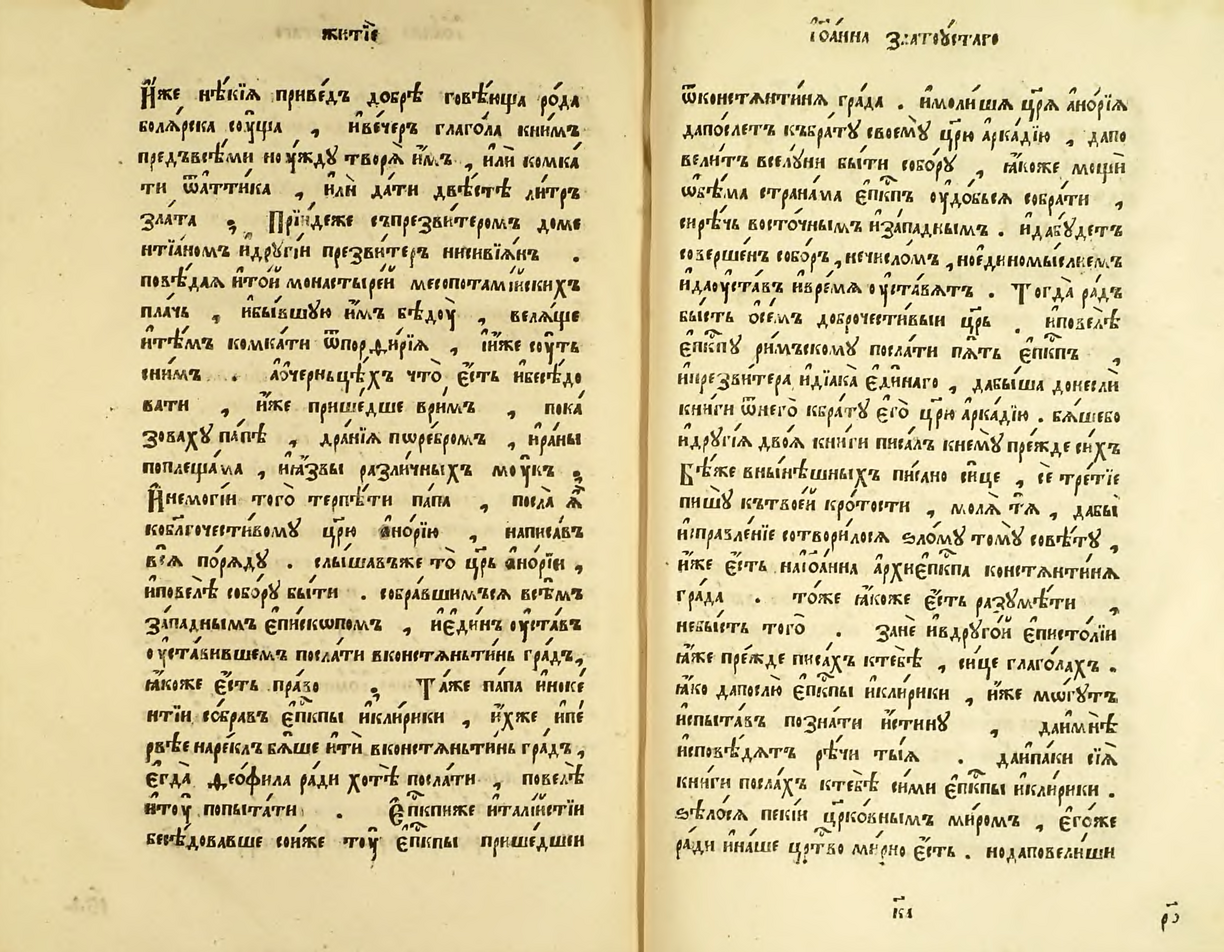 житїе
И҆́же нѣ́кїѧ приве́дъ до́брѣ говѣ́юща ро́да
болѧ́рска соу́ща , ивече́ръ глаго́ла кни́мъ
предъвсѣ́ми ноу́ждꙋ творѧ̀ и҆́мъ , и҆лѝ комка́
ти ѿа́ттика , и҆лѝ да́ти двѣ́стѣ ли́тръ
зла́та , Прїи́деже съпрезви́теромъ доме
нтїа́номъ идрꙋгі́и презви́теръ нисивїѧ́нъ .
повѣ́даѧ и҆то́й монастыре́й месопотамі́искихъ
пла́чь , и҆бы́вшꙋю и҆́мъ бѣдоу̀ , велѧ́ще
и҆тѣ́мъ комка́ти ѿпорѳи́рїѧ , і҆и҆́же соу́ть
сни́мъ . а҆ѻ҆черньцѣ́хъ что̀ є҆́сть и҆бесѣ́до
вати , и҆́же прише́дше врѝмъ , пока́
зовахꙋ па́пѣ , дра́нїѧ поре́бромъ , и҆ра́ны
поплеща́ма , и҆ꙗ҆́звы разли́чныхъ мо́укъ ,
И҆немогі́и того̀ терпѣ́ти па́па , посла̀ ѧ҆̀
кобл҃гочести́вомꙋ цр҃ю̀ а҆но́рїю , написа́въ
всѧ̀ порѧ́дꙋ . слы́шавъже то̀ цр҃ь а҆но́рїи ,
и҆повелѣ̀ собо́рꙋ бы́ти . собра́вшимъсѧ всѣ́мъ
за́паднымъ є҆пи́скѡпомъ , и҆є҆ди́нъ оу҆ста́въ
оу҆ста́вившемъ посла́ти вконстѧньти́нь гра́дъ,
ꙗ҆́коже є҆́сть пра́во . Та́же па́па и҆ноке́
нтїи, собра́въ є҆пкⷭ҇пы и҆кли́рики , и҆́хже и҆пе́
рвѣе наре́клъ бѧ́ше и҆тѝ вконстѧньти́нь гра́дъ,
є҆гда̀ ѳео́фила ра́ди хотѣ̀ посла́ти , повелѣ̀
и҆тоу̀ попыта́ти . Е҆пкⷭ҇пиже и҆талі́йстїи
бесѣ́довавше со́иже тоу̀ є҆пкⷭ҇пы прише́дшеи
і҆ѡа́нна златоу́стаго
ѿконстѧнти́нѧ гра́да . и҆моли́шѧ цр҃ѧ̀ а҆но́рїѧ
дапо́слетъ къбра́тꙋ своемꙋ̀ цр҃ю̀ а҆рка́дїю , дапо
вели́тъ всело́уни бы́ти собо́рꙋ , ꙗ҆́коже мощѝ
ѻ҆бѣ́ма страна́ма є҆пкⷭ҇пъ оу҆до́бьсѧ собра́ти ,
си́рѣчь восто́чнымъ и҆за́паднымъ . и҆дабꙋ́детъ
соверше́нъ собо́ръ, нечисло́мъ, ное҆диномы́слиемъ
и҆даоу҆ста́въ и҆вре́мѧ оу҆ста́вѧтъ . Тогда̀ ра́дъ
бы́сть ѻ҆се́мъ доброчести́выи цр҃ь . и҆повелѣ̀
є҆пкⷭ҇пꙋ ри́мъскомꙋ посла́ти пѧ́ть є҆пкⷭ҇пъ ,
и҆презви́тера и҆дїа́ка є҆ди́наго , дабы́ша донеслѝ
кни́ги ѿнего̀ кбра́тꙋ є҆го̀ цр҃ю̀ а҆рка́дїю . бѧ́шебо
и҆дрꙋгі́ѧ двоѧ̀ кни́ги писа́лъ кнемꙋ̀ пре́жде си́хъ
Бѣ́же вны́нѣшныхъ пи́сано си́це , сѐ тре́тїе
пишꙋ̀ къ твое́й кро́тости , молѧ̀ тѧ̀ , дабы̀
и҆справле́нїе сотвори́лосѧ ѕло́мꙋ томꙋ̀ совѣ́тꙋ ,
и҆́же є҆́сть наі҆ѡа́нна а҆рхие҆пкⷭ҇па констѧнти́нѧ
гра́да . то́же ꙗ҆́коже є҆́сть разꙋмѣ́ти ,
небы́сть того̀ . занѐ и҆вдрꙋго́й є҆писто́лїи
ꙗ҆́же пре́жде писа́хъ ктебѣ̀ , си́це глаго́лахъ .
ꙗ҆́ко дапослю̀ є҆пкⷭ҇пы и҆кли́рики , и҆́же мо́гꙋтъ
и҆спыта́въ позна́ти и҆́стинꙋ , даи҆мнѣ̀
и҆сповѣ́дѧтъ рѣ́чи ты́ѧ . даи҆па́ки сїѧ̀
кни́ги посла́хъ ктебѣ̀ си́ми є҆пкⷭ҇пы и҆кли́рики .
ѕѣ́лосѧ пеки́и цр҃ко́внымъ ми́ромъ , є҆го́же
ра́ди и҆на́ше црⷭ҇тво ми́рно є҆́сть . нодаповели́ши
к҃а